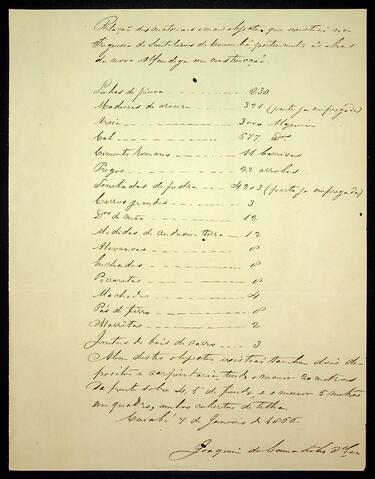 Relação dos materiaes e mais objectos que existião na
Freguesia de
da nova Alfandega em construcção.
Linhas de pinna 230
Madeiras de aroeira 321 (parte ja empregada)
Areia 3000 Alqueires
Cal 577 Dos
Cimento Romano 11 barricas
Pregos 22 arrobas
Toneladas de pedra 4203 (parte ja empregada)
Carros grandes 3
Dos de mão 12
Medidas de conduzir terra 12
Alavancas 8
Inchadas 8
Picaretas 8
Machados 4
Pás de ferro 8
Marretas 2
Juntas de bois de carro 3
Alem distes objectos existião tambem dois de-
positos e carpintaria, tendo o maior 20 metros
de frente sobre 4,5 de fundo, e o menor 5 metros
em quadro, ambos cobertos de telha.
7 de Janeiro de 1866.
Joaquim de